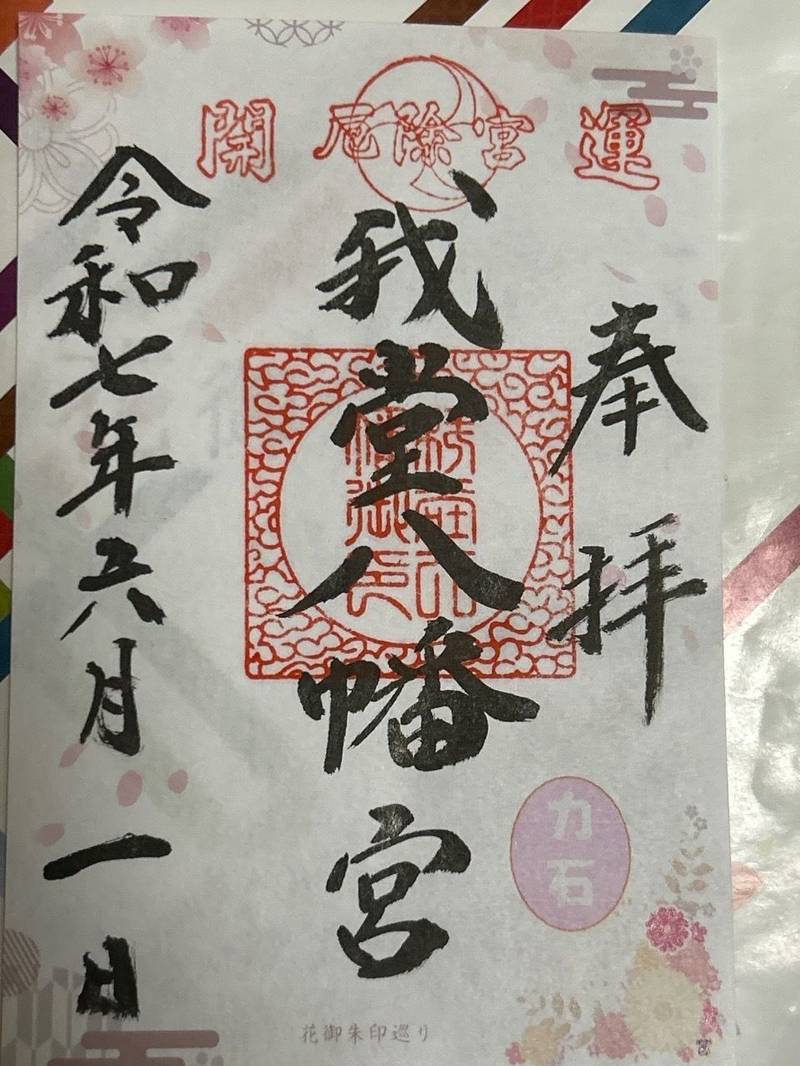 開 厄除宮 運
奉拝
我堂八幡宮
令和七年六月一日
力石
花御朱印巡り